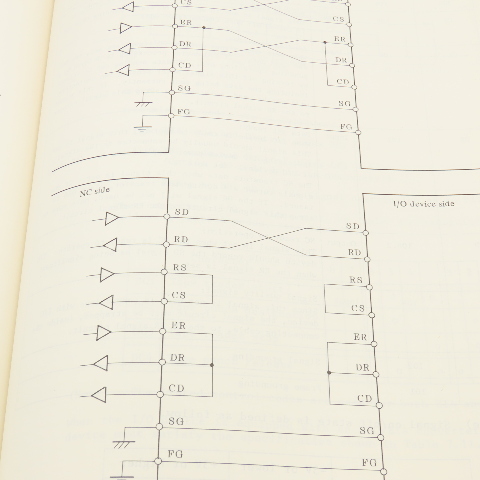 CS
CS
ER
ER
DR
DR
CD
CD
SG
SG
FG
FG
NC side
I/O device side
SD
SD
RD
RD
RS
RS
CS
CS
ER
ER
DR
DR
CD
CD
SG
SG
FG
FG